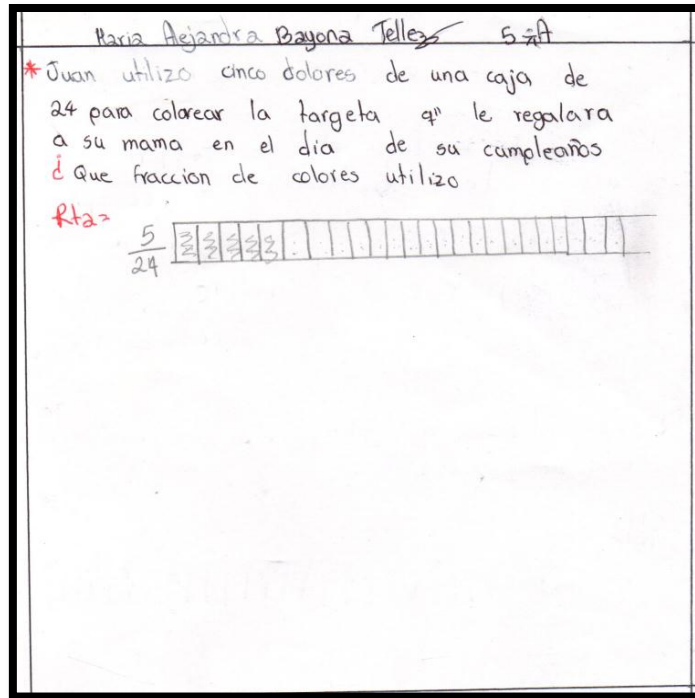 Maria Alejandra Bayona Tellez 5 A
* Juan utilizo cinco colores de una caja de
24 para colorear la targeta q" le regalara
a su mama en el dia de su cumpleaños
¿ Que fraccion de colores utilizo
Rta=
5
24